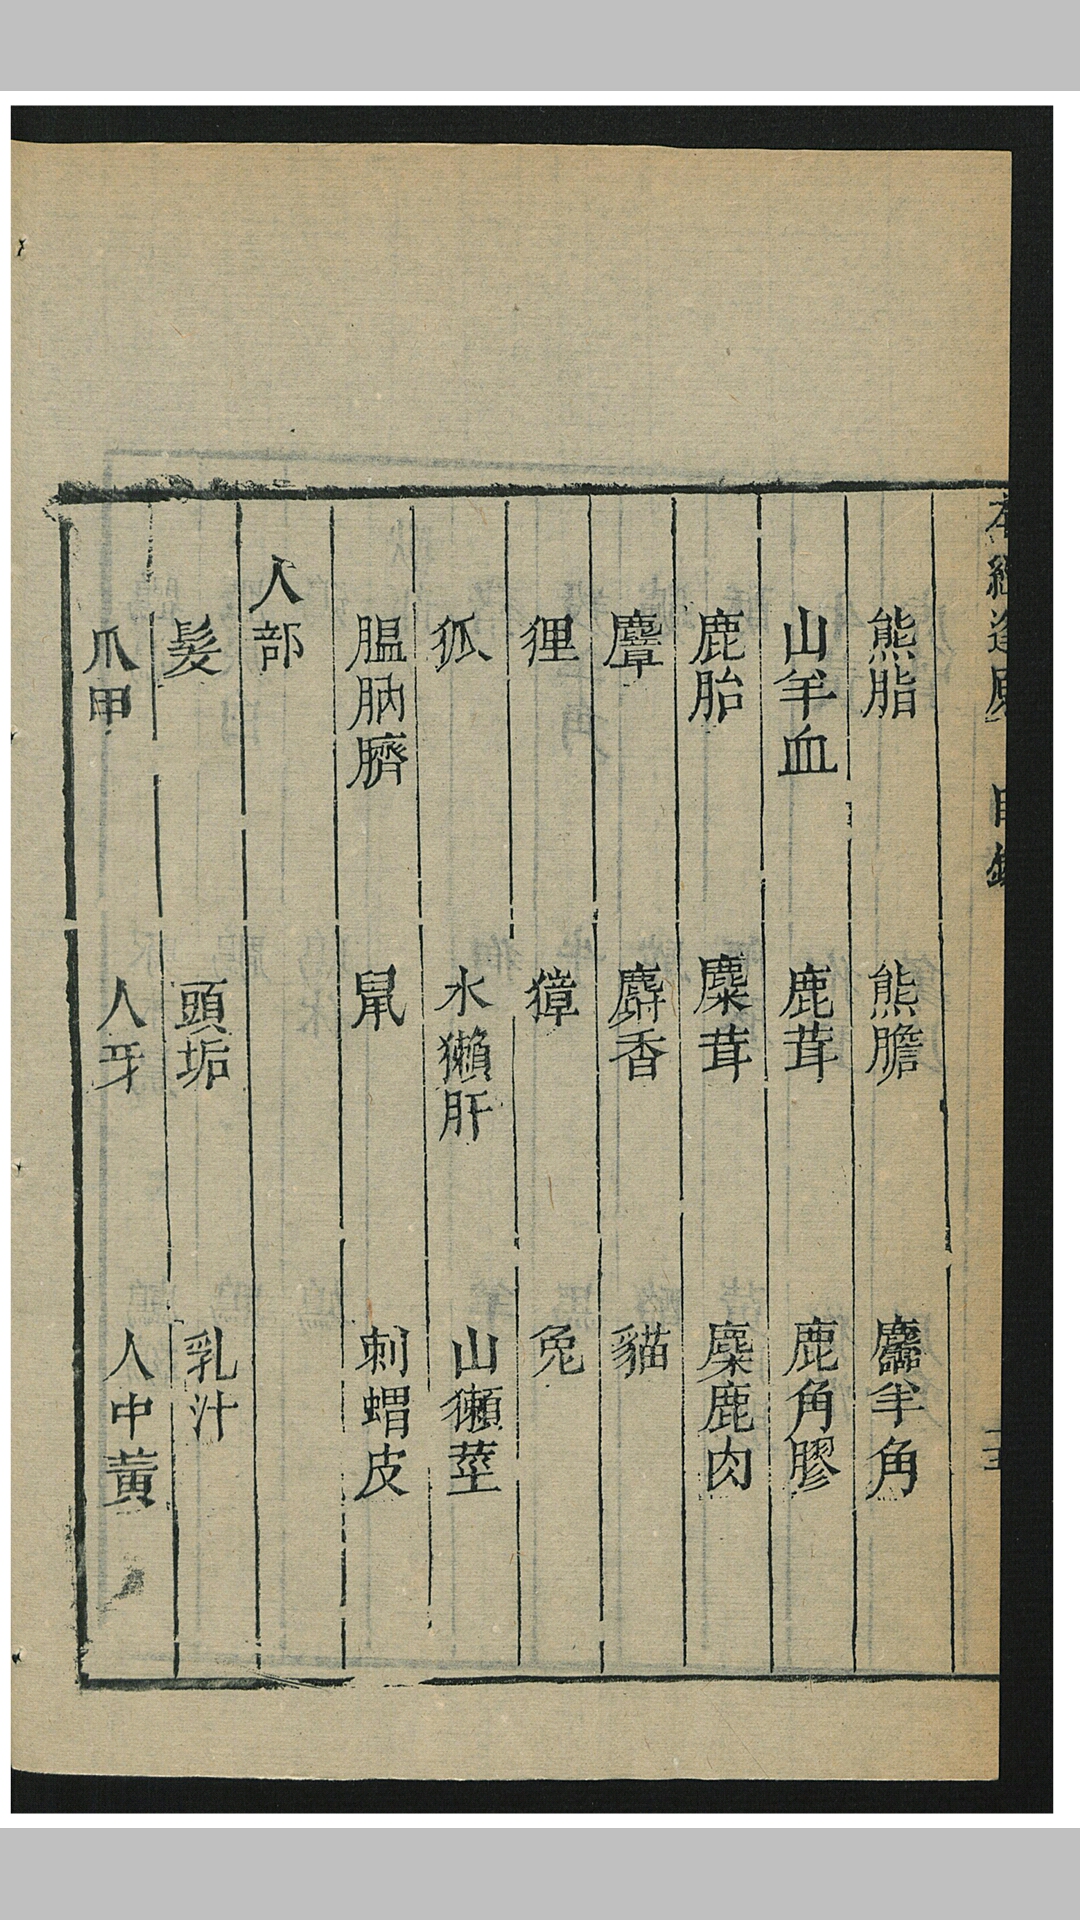 本經逢原 目錄 十五
熊脂 熊膽 麢羊角
山羊血 鹿茸 鹿角膠
鹿胎 麋茸 麋鹿肉
麞 麝香 貓
狸 獚 兔
狐 水獺肝 山獺莖
膃肭臍 鼠 刺蝟皮
人部
髮 頭垢 乳汁
爪甲 人牙 人中黃